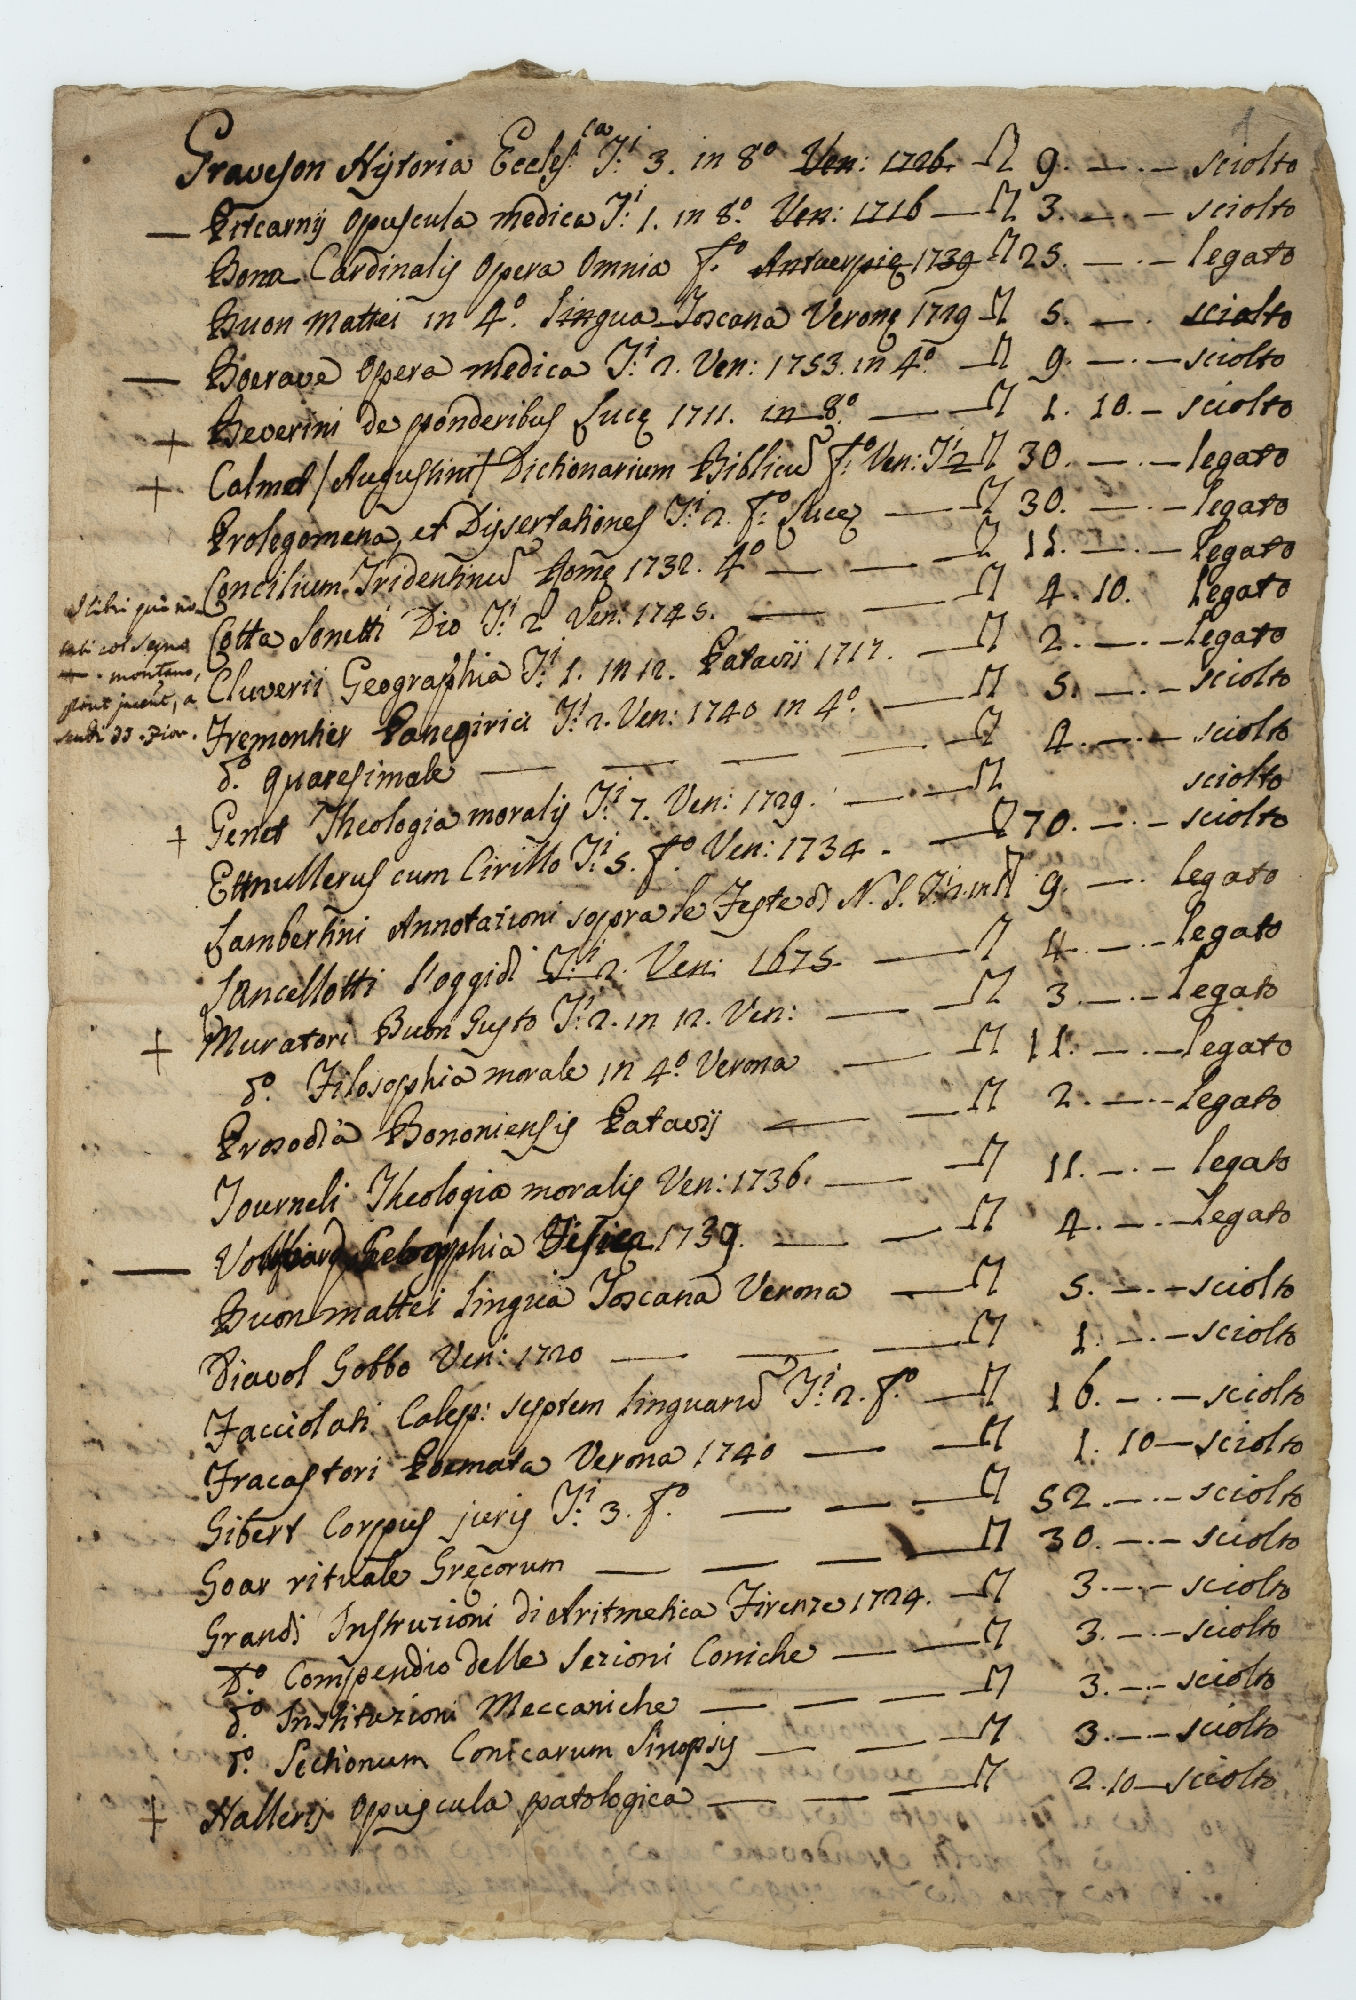 1
Graveson Hystoria Eccles.ca T:i 3. in 8o Ven: 1726. — 9. — . — sciolto
— Pitcarnij opuscula medica T:i 1. in 8.o Ven: 1716 — 3. — . — sciolto
Bona Cardinalis opera omnia f.o Antuerpię 1739 25. — . — legato
Buon mattei in 4.o lingua Toscana Veronę 1729 5. — . sciolto
— Boerave opera medica T:i 2. Ven: 1753. in 4.o — 9. — . — sciolto
+ Beverini de ponderibus Lucę 1711. in 8.o — 1. 10. — sciolto
+ Calmet / Augustini / Dictionarium Biblicu f.o Ven: T:i 2 30. — . — legato
Prolegomena, et Dyssertationes T:i 2. f.o Lucę — 30. — . — legato
Concilium Tridentinu Romę 1732. 4.o — — 11. — . — legato
Cotta Sonetti Dio T:i 2 Ven: 1745. — — 4. 10. legato
Cluverii Geographia T:i 1. in 12. Patavij 1717. — 2. — . — legato
Tremonhier Panegirici T:i 2. Ven: 1740 in 4.o — 5. — . — sciolto
d.o quaresimale — — — — 4. — . — sciolto
+ Genet Theologia moralis T:i 7. Ven: 1729. — — sciolto
Etmullerus cum Cirillo T:i 5. f.o Ven: 1734. — 70. — . — sciolto
Lambertini Annotazioni sopra le Feste di N. S. T:i 2. in 9. — . legato
Lancellotti l'oggidì T:i 2. Ven: 1675. — 4. — . — legato
+ Muratori Buon Gusto T:i 2. in 12. Ven: — — 3. — . — legato
d.o Filosophia morale in 4.o Verona — — 11. — . — legato
Prosodia Bononiensis Patavij — — 2. — . — legato
Tourneli Theologia moralis Ven: 1736. — — 11. — . — legato
— 1739. — — 4. — . — legato
Buon mattei lingua Toscana Verona — — 5. — . — sciolto
Diavol Gobbo Ven: 1720 — — — 1. — . — sciolto
Facciolati Calep: septem linguaru T:i 2. f.o — 16. — . — sciolto
Fracastori Poemata Verona 1740 — — 1. 10 — sciolto
Gibert Corpus juris T:i 3. f.o — — — 52. — . — sciolto
Goar rituale Gręcorum — — — — 30. — . — sciolto
Grandi Instruzioni di Aritmetica Firenze 1724. — 3. — . — sciolto
D.o Compendio delle Sezioni Coniche — — 3. — . — sciolto
d.o Instituzioni Meccaniche — — — — 3. — . — sciolto
d.o Sectionum Conicarum Sinopsis — — — 3. — . — sciolto
+ Halleris opuscula patologica — — — 2. 10 — sciolto
I libri qui no-
tati col segno
+ . montano,